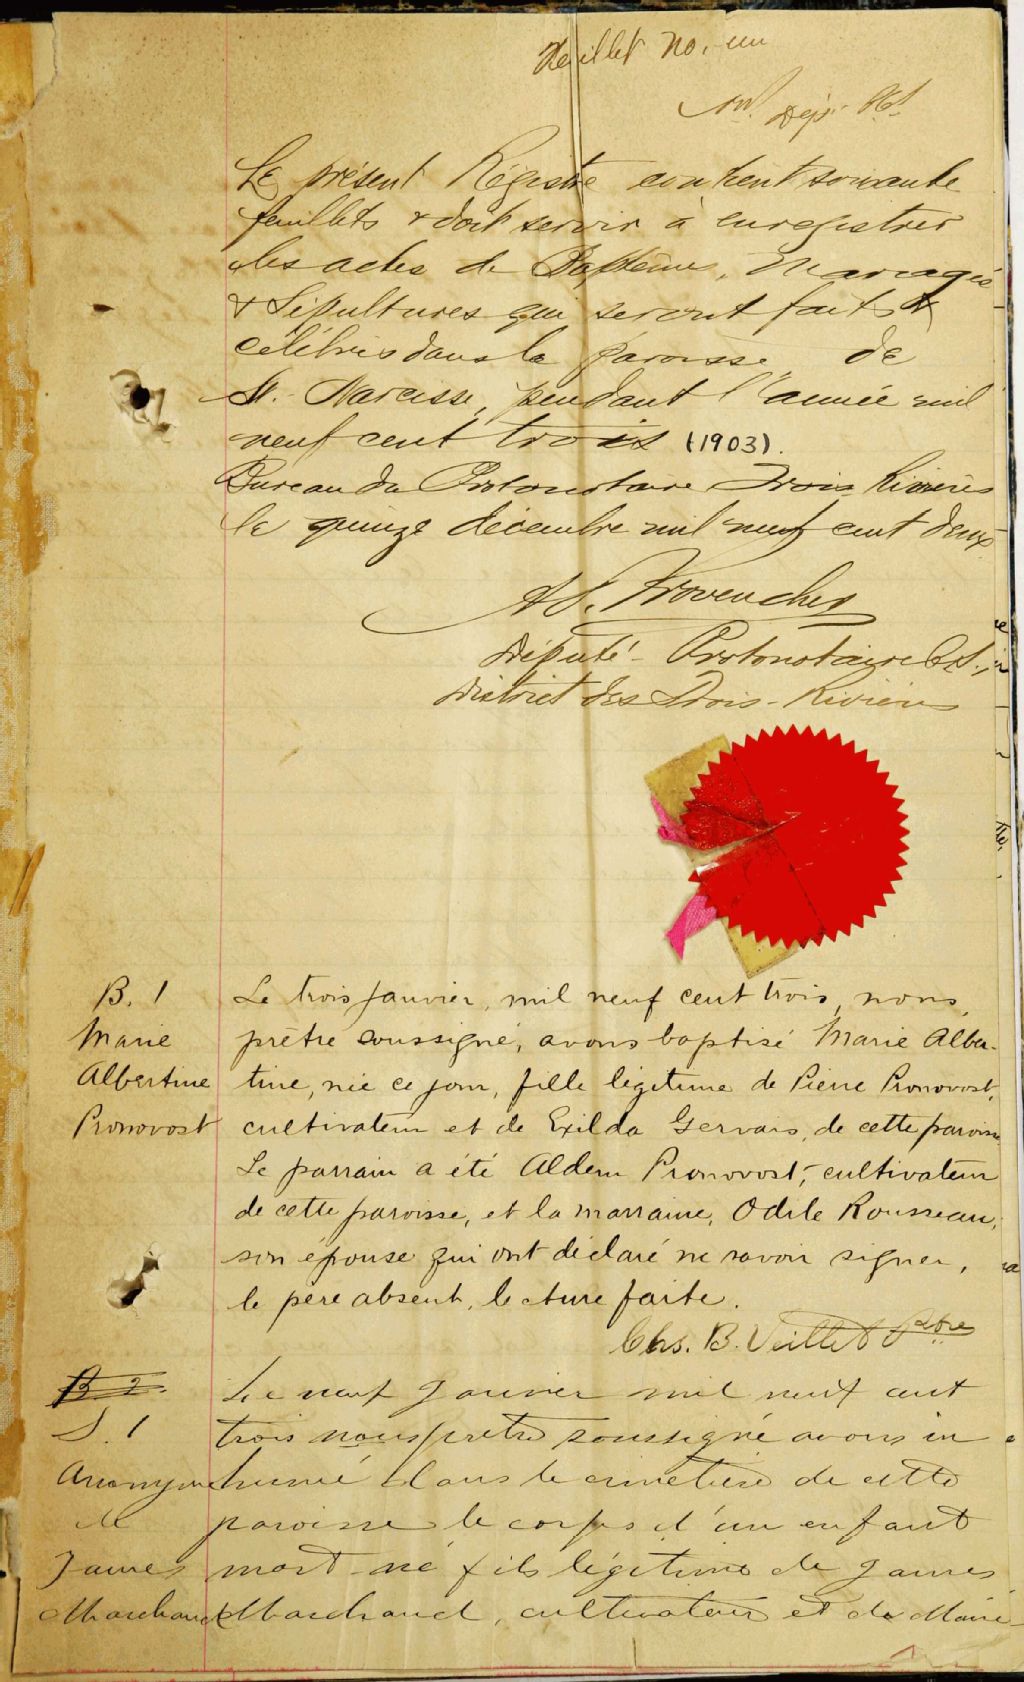 Feuillet No. un
Dép. P.
Le présent Régistre contient soixante
feuillets & doit servir à enregistrer
les actes de Baptême, Mariages
& Sépultures qui seront faits &
célébrés dans la paroisse de
St. Narcisse, pendant l'année mil
neuf cent trois (1903).
Bureau du Protonotaire Trois Rivières
le quinze décembre mil neuf cent deux
Provencher
Député-Protonotaire C.S.,
District des Trois-Rivières
B. 1
Marie
Albertine
Pronovost
Le trois janvier, mil neuf cent trois, nous,
prêtre soussigné, avons baptisé Marie Alber-
tine, née ce jour, fille légitime de Pierre Pronovost,
cultivateur et de Exilda Gervais, de cette paroisse
Le parrain a été Aldem Pronovost, cultivateur
de cette paroisse, et la marraine, Odile Rousseau,
son épouse qui ont déclaré ne savoir signer,
le père absent, lecture faite.
Chs. B. Veillet Ptre
B 2.
S. 1
Anonyme
de
James
Marchand
Le neuf janvier mil neuf cent
trois nous prêtre soussigné avons in
humé dans le cimetière de cette
paroisse le corps d'un enfant
mort-né fils légitime de James
Marchand, cultivateur et de Marie